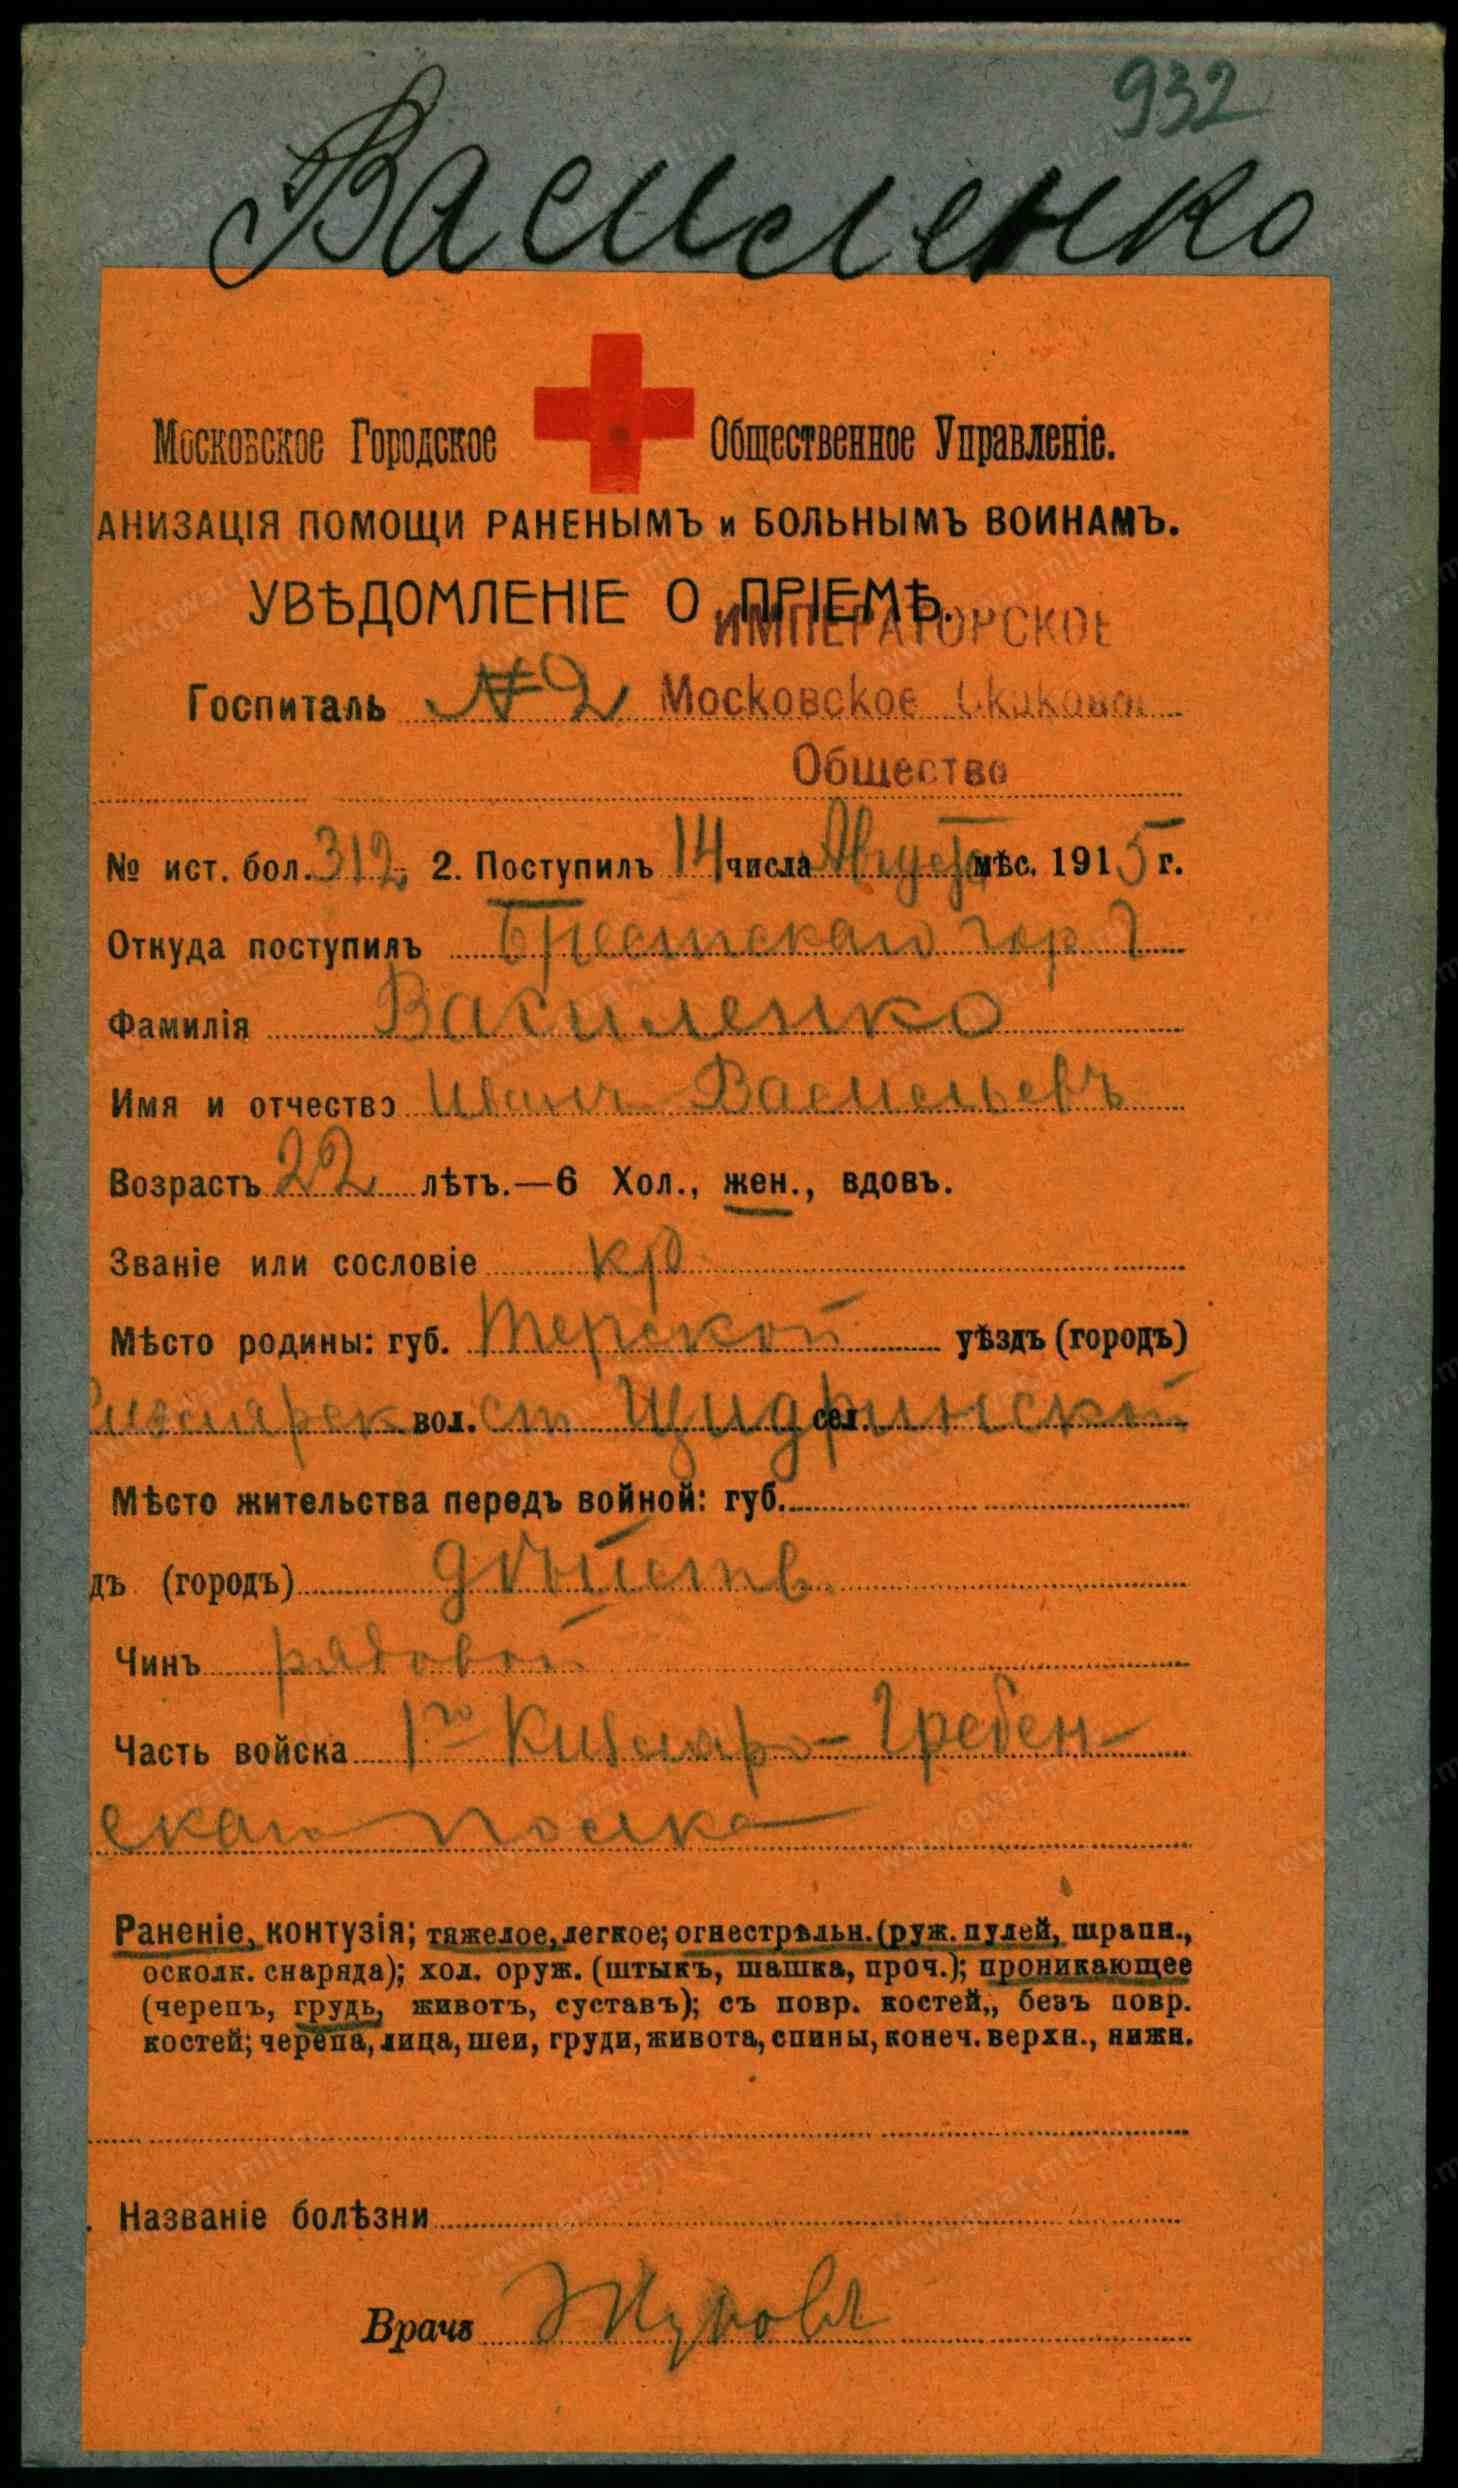 932
Василенко
Московское Городское Общественное Управленіе.
АНИЗАЦІЯ ПОМОЩИ РАНЕНЫМЪ и БОЛЬНЫМЪ ВОИНАМЪ.
УВѢДОМЛЕНІЕ О ПРІЕМѢ.
ИМПЕРАТОРСКОЕ
Госпиталь №2 Московское Скаковое
Общество
№ ист. бол. 312 2. Поступилъ 14 числа Августа мѣс. 1915 г.
Откуда поступилъ Брестскаго
Фамилія Василенко
Имя и отчество Иванъ Васильевъ
Возрастъ 22 лѣтъ.—6 Хол., жен., вдовъ.
Званіе или сословіе кр
Мѣсто родины: губ. Терской уѣздъ (городъ)
Кизлярск вол. ст Щидринской сел.
Мѣсто жительства передъ войной: губ.
дъ (городъ) дѣйств.
Чинъ рядовой
Часть войска 1го Кизляро-Гребен-
скаго полка
Раненіе, контузія; тяжелое, легкое; огнестрѣльн. (руж. пулей, шрапн.,
осколк. снаряда); хол. оруж. (штыкъ, шашка, проч.); проникающее
(черепъ, грудь, животъ, суставъ); съ повр. костей,, безъ повр.
костей; черепа, лица, шеи, груди, живота, спины, конеч. верхн., нижн.
. Названіе болѣзни
Врачъ